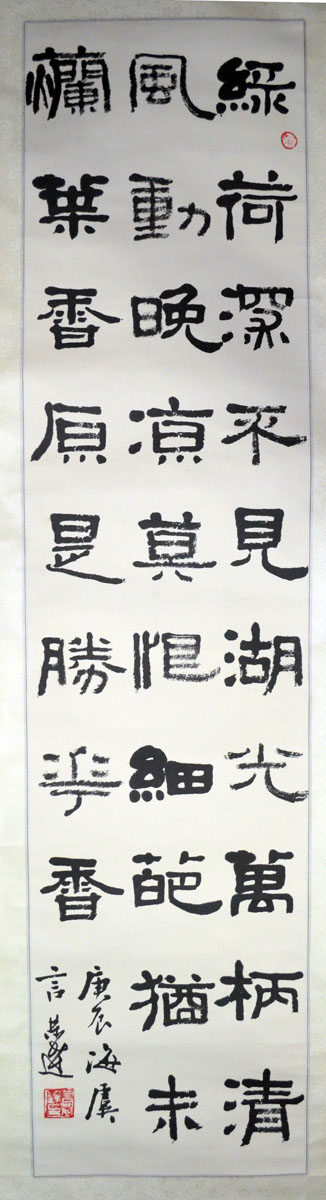 綠荷深不見湖光萬柄清
風動晚凉莫恨細葩猶未
爛葉香原是勝華香
庚辰海虞
言恭達